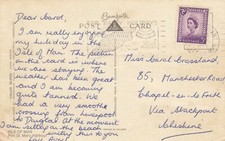 Dear Carol,
I am really enjoying
my holiday in the
Isle of Man. The picture
on the card is where
we are staying. The
weather has been great
and I am becoming
quite tanned. We
had a very smooth
crossing from Liverpool
to Douglas. At the moment
I am sitting on the beach
writing this to you
POST CARD
Miss Carol Crossland,
85, Manchester Road
Chapel-en-le-Frith
Via Stockport
Cheshire
ISLE OF MAN